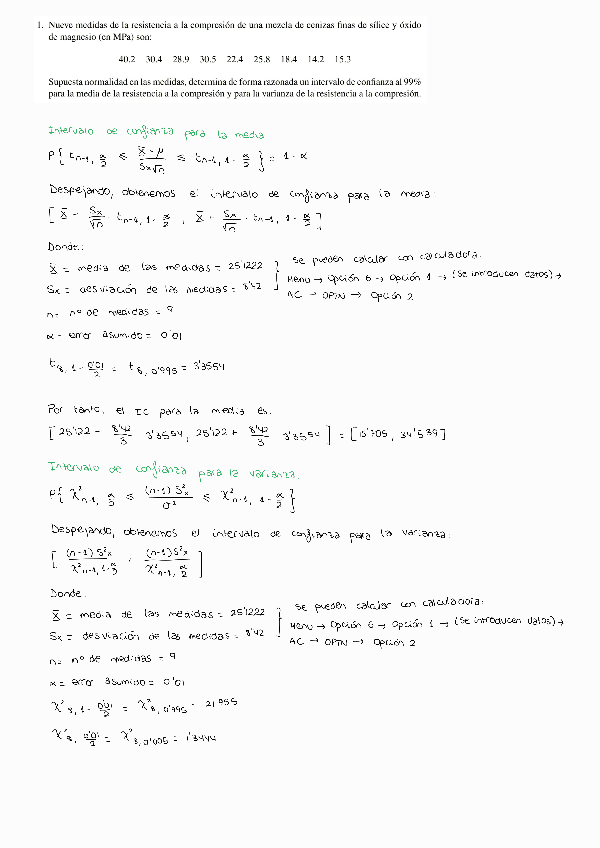 1. Nueve medidas de la resistencia a la compresión de una mezcla de cenizas finas de sílice y óxido
de magnesio (en MPa) son:
40.2 30.4 28.9 30.5 22.4 25.8 18.4 14.2 15.3
Supuesta normalidad en las medidas, determina de forma razonada un intervalo de confianza al 99%
para la media de la resistencia a la compresión y para la varianza de la resistencia a la compresión.
Intervalo de confianza para la media
P{ t n-1, α/2 ≤ (x̄ - μ)/(Sx√n) ≤ t n-1, 1-α/2 } = 1-α
Despejando, obtenemos el intervalo de confianza para la media:
[ x̄ - Sx/√n t n-1, 1-α/2 , x̄ - Sx/√n · t n-1, 1-α/2 ]
Donde:
x̄ = media de las medidas = 25'1222
Sx = desviación de las medidas = 8'42
Se pueden calcular con calculadora:
Menu → Opción 6 → Opción 1 → (Se introducen datos) →
AC → OPTN → Opción 2
n = nº de medidas = 9
α = error asumido = 0'01
t 8, 1-0'01/2 = t 8, 0'995 = 3'3554
Por tanto, el IC para la media es:
[ 25'122 - 8'42/3 3'3554, 25'122 + 8'42/3 3'3554 ] = [15'705, 34'539]
Intervalo de confianza para la varianza.
P{ χ² n-1, α/2 ≤ (n-1) S²x/σ² ≤ χ² n-1, 1-α/2 }
Despejando, obtenemos el intervalo de confianza para la varianza:
[ (n-1) S²x/χ² n-1, 1-α/2 , (n-1) S²x/χ² n-1, α/2 ]
Donde:
x̄ = media de las medidas = 25'1222
Sx = desviación de las medidas = 8'42
Se pueden calcular con calculadora:
Menu → Opción 6 → Opción 1 → (Se introducen datos) →
AC → OPTN → Opción 2
n = nº de medidas = 9
α = error asumido = 0'01
χ² 8, 1-0'01/2 = χ² 8, 0'995 = 21'955
χ² 8, 0'01/2 = χ² 8, 0'005 = 1'3444